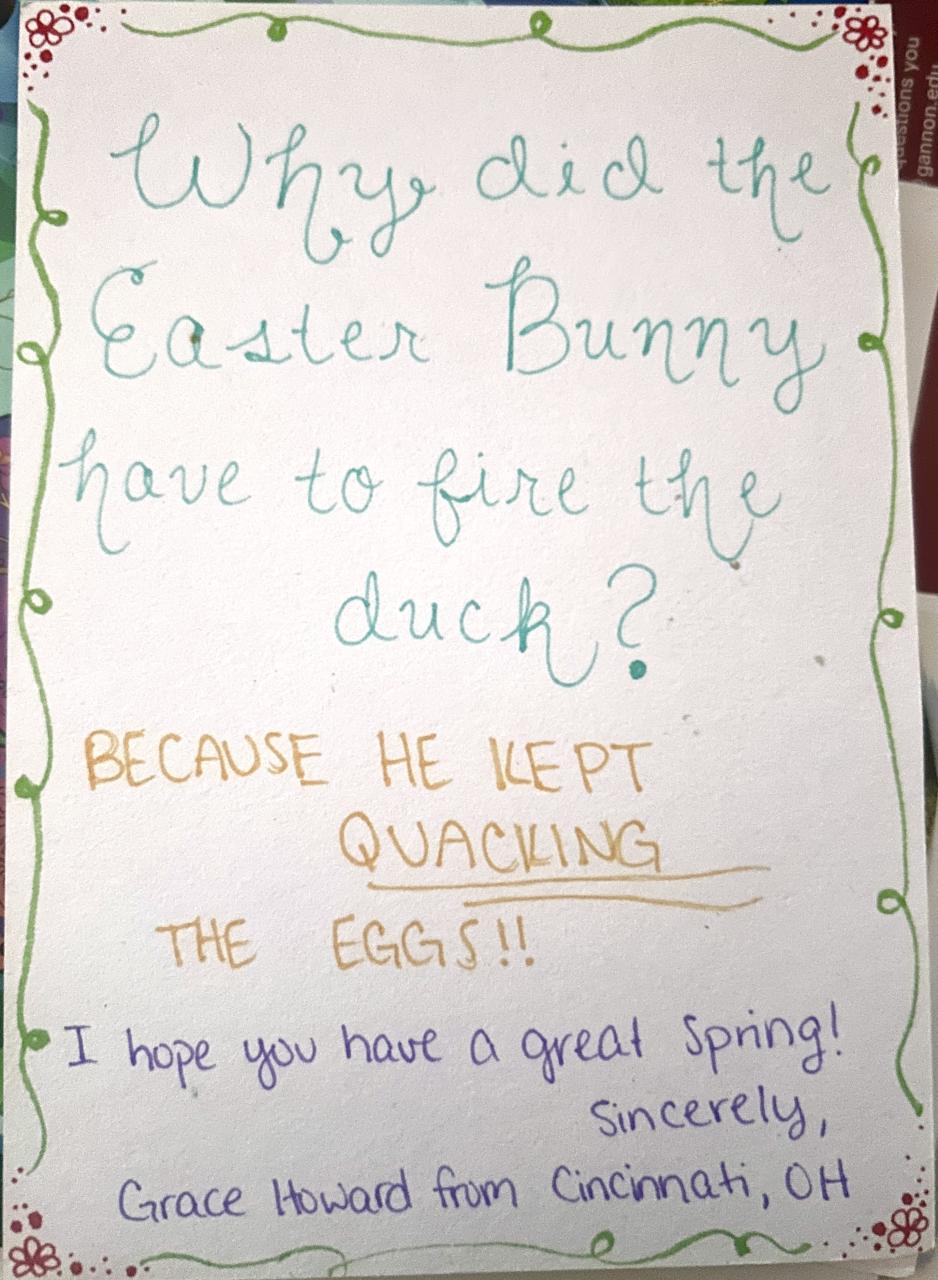 Why did the
Easter Bunny
have to fire the
duck?
BECAUSE HE KEPT
QUACKING
THE EGGS!!
I hope you have a great Spring!
Sincerely,
Grace Howard from Cincinnati, OH
questions you
gannon.edu